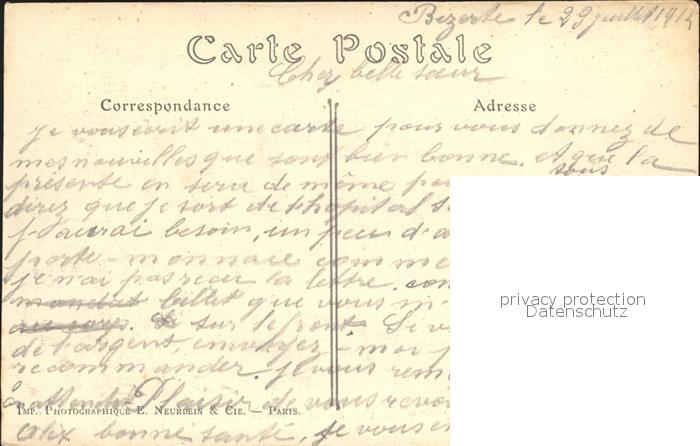 Bizerte le 29 juillet 191
Carte Postale
Cher belle sœur
Correspondance
Adresse
Je vous écrit une carte pour vous donnez de
mes nouvelles que sont bien bonne. et que la
présente en sera de même
sous
direz que je sort de l'hopital
J'aurai besoin, un peu d'a
porte-monnaie comme
je n'ai pas reçu la lettre.
mandat billet que vous m'
sur le front. Si v
de l'argent, envoyez-moi
recommander. je vous rem
attendre Plaisir de vous revoi
IMP. PHOTOGRAPHIQUE E. NEURDEIN & CIE. — PARIS.
bonne santé, je vous
privacy protection
Datenschutz